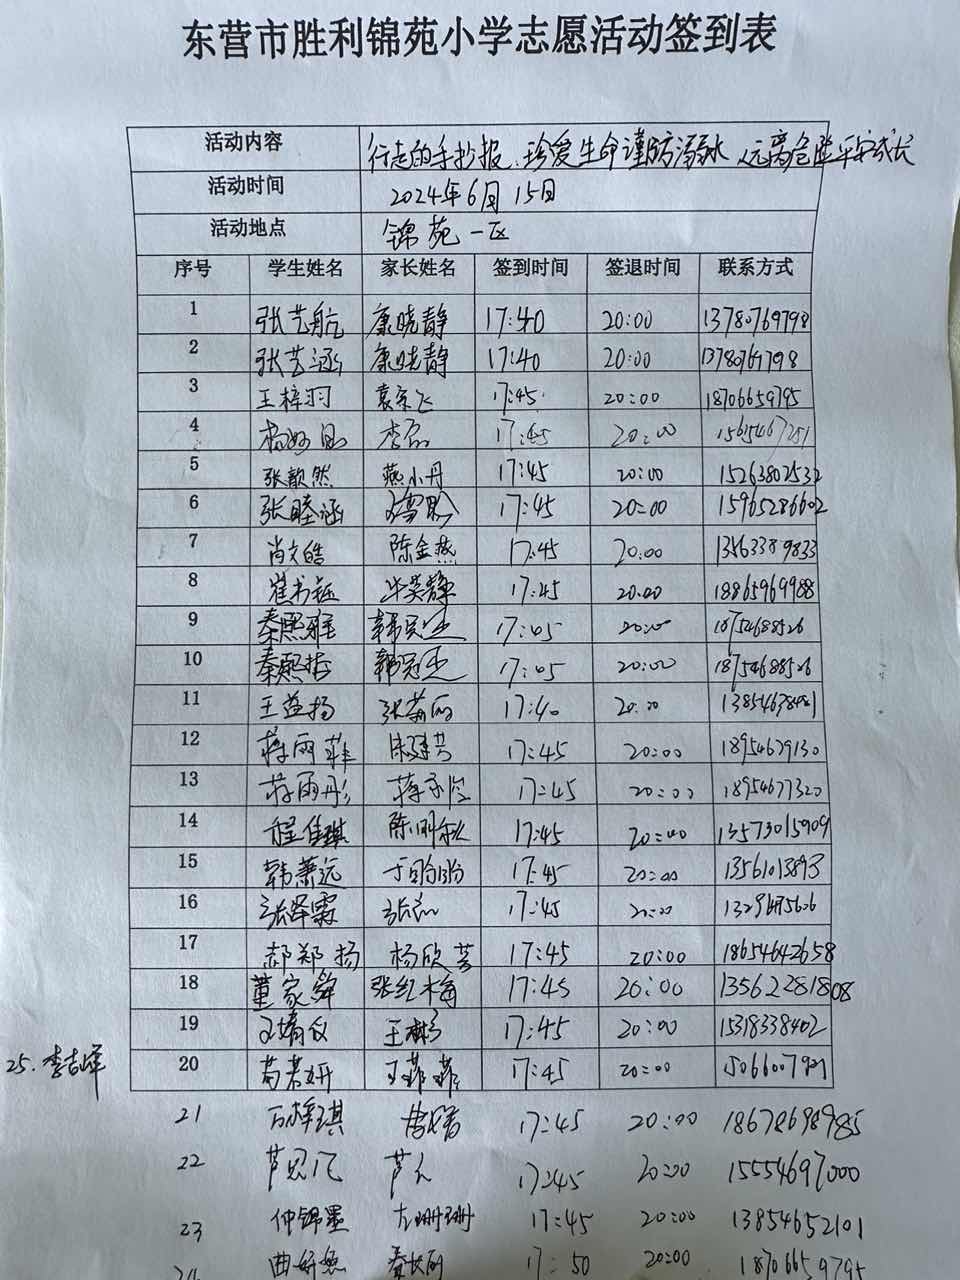 东营市胜利锦苑小学志愿活动签到表
活动内容 行走的手抄报、珍爱生命谨防溺水 远离危险平安成长
活动时间 2024年6月15日
活动地点 锦苑一区
序号 学生姓名 家长姓名 签到时间 签退时间 联系方式
1 张艺航 康晓静 17:40 20:00 13780769798
2 张艺涵 康晓静 17:40 20:00 13780769798
3 王梓羽 17:45 20:00 18706659795
4 李磊 17:45 20:00
5 张歆然 燕小丹 17:45 20:00 15263802532
6 张睦涵 17:45 20:00 15965286602
7 肖文皓 陈金燕 17:45 20:00 13563389833
8 崔书钰 毕英静 17:45 20:00 18865969988
9 秦熙雅 17:05 20:00 18754688526
10 秦熙振 17:05 20:00 18754688526
11 王益扬 17:40 20:00
12 蒋雨菲 17:45 20:00 18954679130
13 蒋雨彤 17:45 20:00 18954677320
14 程佳琪 17:45 20:00 13573015909
15 韩萧远 17:45 20:00 13561013893
16 张泽霖 张磊 17:45 20:00
17 郝郑扬 杨欣芸 17:45 20:00 18654642658
18 董家舜 张红梅 17:45 20:00 13562281808
19 王靖仪 王彬 17:45 20:00 15318338402
25. 李吉峰
20 苟若妍 王菲菲 17:45 20:00 15066007921
21 17:45 20:00 18678698985
22 17:45 20:00 15554697000
23 仲锦墨 左珊珊 17:45 20:00 13854652101
24 17:50 20:00 18706659795